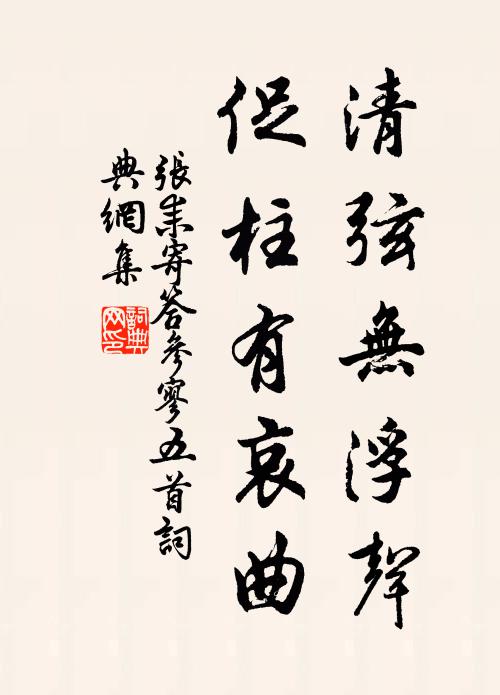 清弦無浮聲
促柱有哀曲
張耒寄答參寥五首詞
典網集
詞典网印